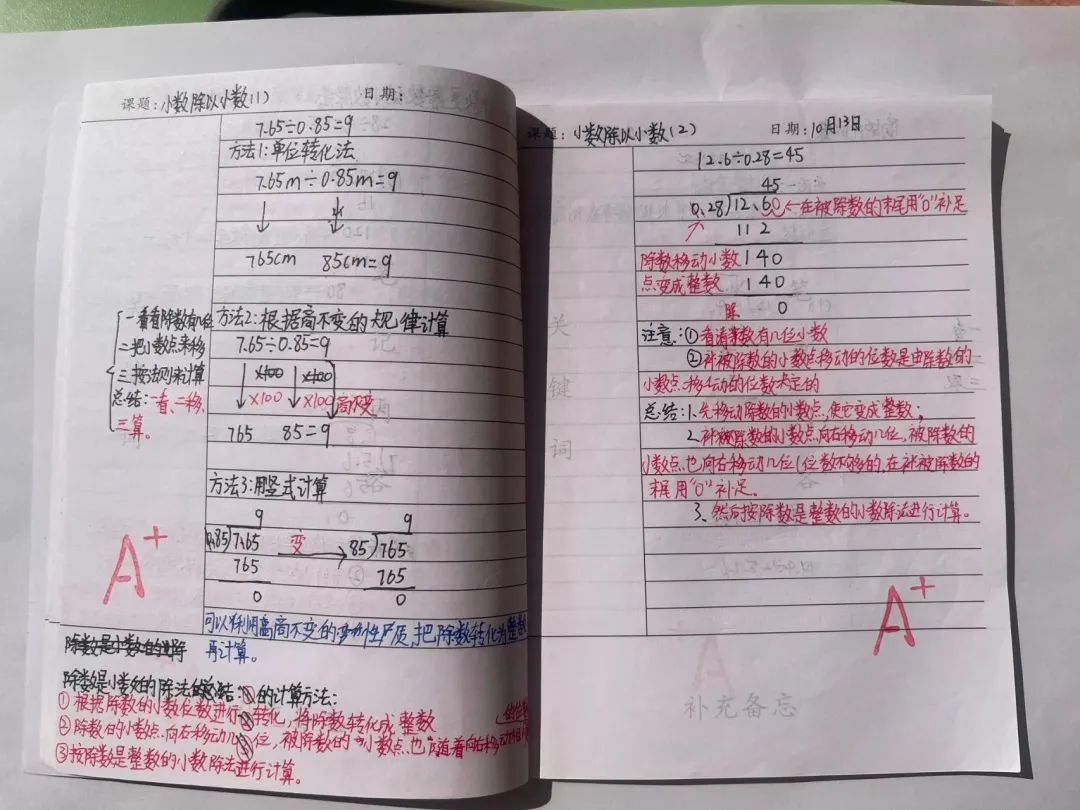 课题：小数除以小数(1) 日期：
7.65÷0.85=9
方法1：单位转化法
7.65m÷0.85m=9
765cm 85cm=9
一看看除数有几位
二把小数点来移
三按法则来计算
总结：一看、二移、
三算。
方法2：根据商不变的规律计算
7.65÷0.85=9
×100 ×100
×100 ×100 商不变
765 85=9
方法3：用竖式计算
9 9
0.85 7.65 变 85 765
765 765
0 0
A+
可以利用商不变的性质，把除数转化为整数
再计算。
除数是小数的除法的计算方法：
①根据除数的小数位数进行转化，将除数转化成整数
②除数的小数点向右移动几位，被除数的小数点也随着向右移动
③按除数是整数的小数除法进行计算。
课题：小数除以小数(2) 日期：10月13日
12.6÷0.28=45
45
0.28 12.60 ←在被除数的末尾用"0"补足
112
除数移动小数 140
点变成整数 140
0
注意：①看清除数有几位小数
②被除数的小数点移动的位数是由除数的
小数点移动的位数决定的
总结：1.先移动除数的小数点，使它变成整数；
2.除数的小数点向右移动几位，被除数的
小数点也向右移动几位(位数不够的，在被除数的
末尾用"0"补足。
3、然后按除数是整数的小数除法进行计算。
关
键
词
A+
补充备忘